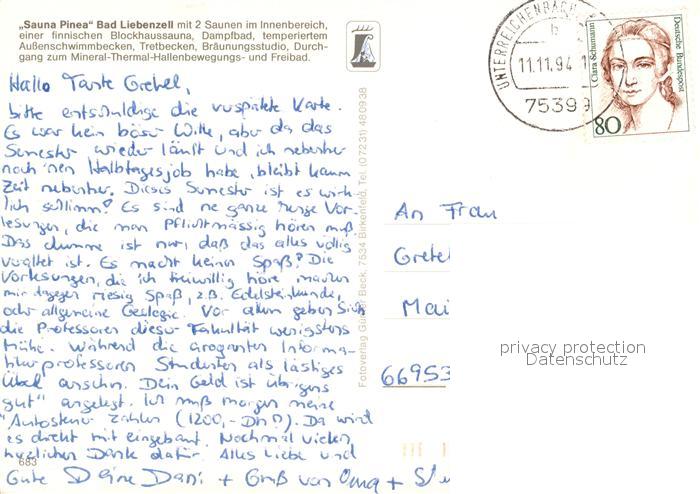 „Sauna Pinea" Bad Liebenzell mit 2 Saunen im Innenbereich,
einer finnischen Blockhaussauna, Dampfbad, temperiertem
Außenschwimmbecken, Tretbecken, Bräunungsstudio, Durch-
gang zum Mineral-Thermal-Hallenbewegungs- und Freibad.
Hallo Tante Gretel,
bitte entschuldige die verspätete Karte.
Es war kein böser Wille, aber da das
Semester wieder läuft und ich nebenher
noch 'nen Halbtagesjob habe, bleibt kaum
Zeit nebenher. Dieses Semester ist es wirk-
lich schlimm! Es sind ne ganze Menge Vor-
lesungen, die man pflichtmässig hören muß.
Das dumme ist nur, daß das alles völlig
veraltet ist. Es macht keinen Spaß! Die
Vorlesungen, die ich freiwillig höre machen
mir dagegen riesig Spaß, z.B. Edelsteinkunde,
oder allgemeine Geologie. Vor allem geben sich
die Professoren dieser Fakultät wenigstens
Mühe. Während die arroganten Informa-
tikprofessoren Studenten als lästiges
Übel ansehn. Dein Geld ist übrigens
gut" angelegt. Ich muß morgen meine
"Autosteuer zahlen (1200,- DM!!). Da wird
es direkt mit eingebaut. Nochmal vielen,
herzlichen Dank dafür. Alles Liebe und
683
Gute Deine Dani + Gruß von Oma +
Fotoverlag Günter Beck, 7534 Birkenfeld, Tel. (07231) 480938
UNTERREICHENBACH
b
11.11.94
75399
Deutsche Bundespost
Clara Schumann
80
An Frau
Gretel
Mai
66953
privacy protection
Datenschutz